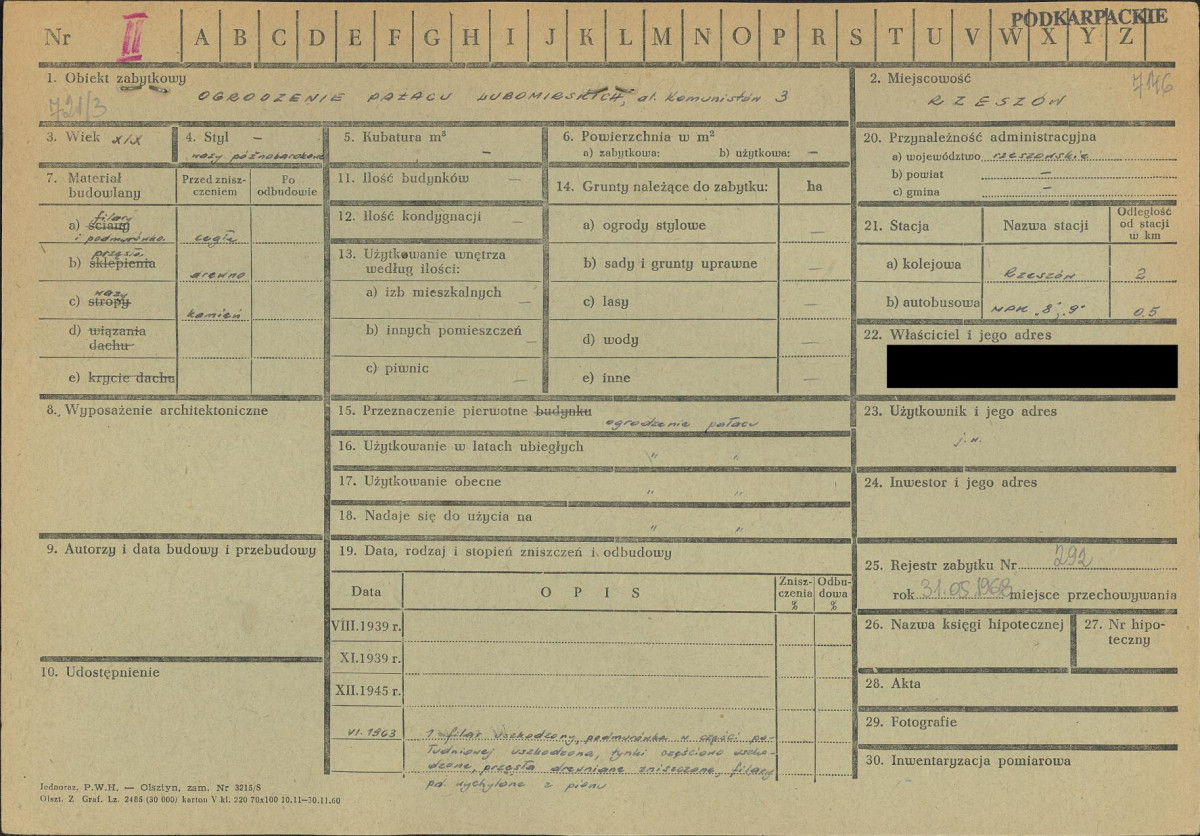 PODKARPACKIE
Nr II A B C D E F G H I J K L M N O P R S T U V W X Y Z
1. Obiekt zabytkowy
721/3
OGRODZENIE PAŁACU LUBOMIRSKICH, al. Komunistów 3
2. Miejscowość
746
RZESZÓW
3. Wiek XIX
4. Styl –
wazy późnobarokowe
5. Kubatura m³
–
6. Powierzchnia w m²
a) zabytkowa: b) użytkowa: –
7. Materiał budowlany
Przed zniszczeniem
Po odbudowie
filary
a) ściany
i podmurówka cegła
przęsła
b) sklepienia
drewno
wazy
c) stropy
kamień
d) wiązania
dachu
e) krycie dachu
11. Ilość budynków –
12. Ilość kondygnacji –
13. Użytkowanie wnętrza
według ilości:
a) izb mieszkalnych –
b) innych pomieszczeń –
c) piwnic –
14. Grunty należące do zabytku: ha
a) ogrody stylowe –
b) sady i grunty uprawne –
c) lasy –
d) wody –
e) inne –
20. Przynależność administracyjna
a) województwo rzeszowskie
b) powiat –
c) gmina –
21. Stacja
Nazwa stacji
Odległość
od stacji
w km
a) kolejowa Rzeszów 2
b) autobusowa MPK „8”, „9” 0.5
22. Właściciel i jego adres
8. Wyposażenie architektoniczne
15. Przeznaczenie pierwotne budynku
ogrodzenie pałacu
16. Użytkowanie w latach ubiegłych
" "
17. Użytkowanie obecne
" "
18. Nadaje się do użycia na
" "
23. Użytkownik i jego adres
j.w.
24. Inwestor i jego adres
9. Autorzy i data budowy i przebudowy
19. Data, rodzaj i stopień zniszczeń i odbudowy
Data
OPIS
Zniszczenia
%
Odbudowa
%
VIII.1939 r.
XI.1939 r.
XII.1945 r.
VI. 1963 1 filar uszkodzony, podmurówka w części po-
łudniowej uszkodzona, tynki częściowo uszko-
dzone, przęsła drewniane zniszczone, filary
pd. wychylone z pionu
25. Rejestr zabytku Nr 292
rok 31.05.1968 miejsce przechowywania
26. Nazwa księgi hipotecznej
27. Nr hipo-
teczny
10. Udostępnienie
28. Akta
29. Fotografie
30. Inwentaryzacja pomiarowa
Jednoraz. P.W.H. — Olsztyn, zam. Nr 3215/S
Olszt. Z. Graf. Lz. 2485 (30 000) karton V kl. 220 70x100 10.11—30.11.60